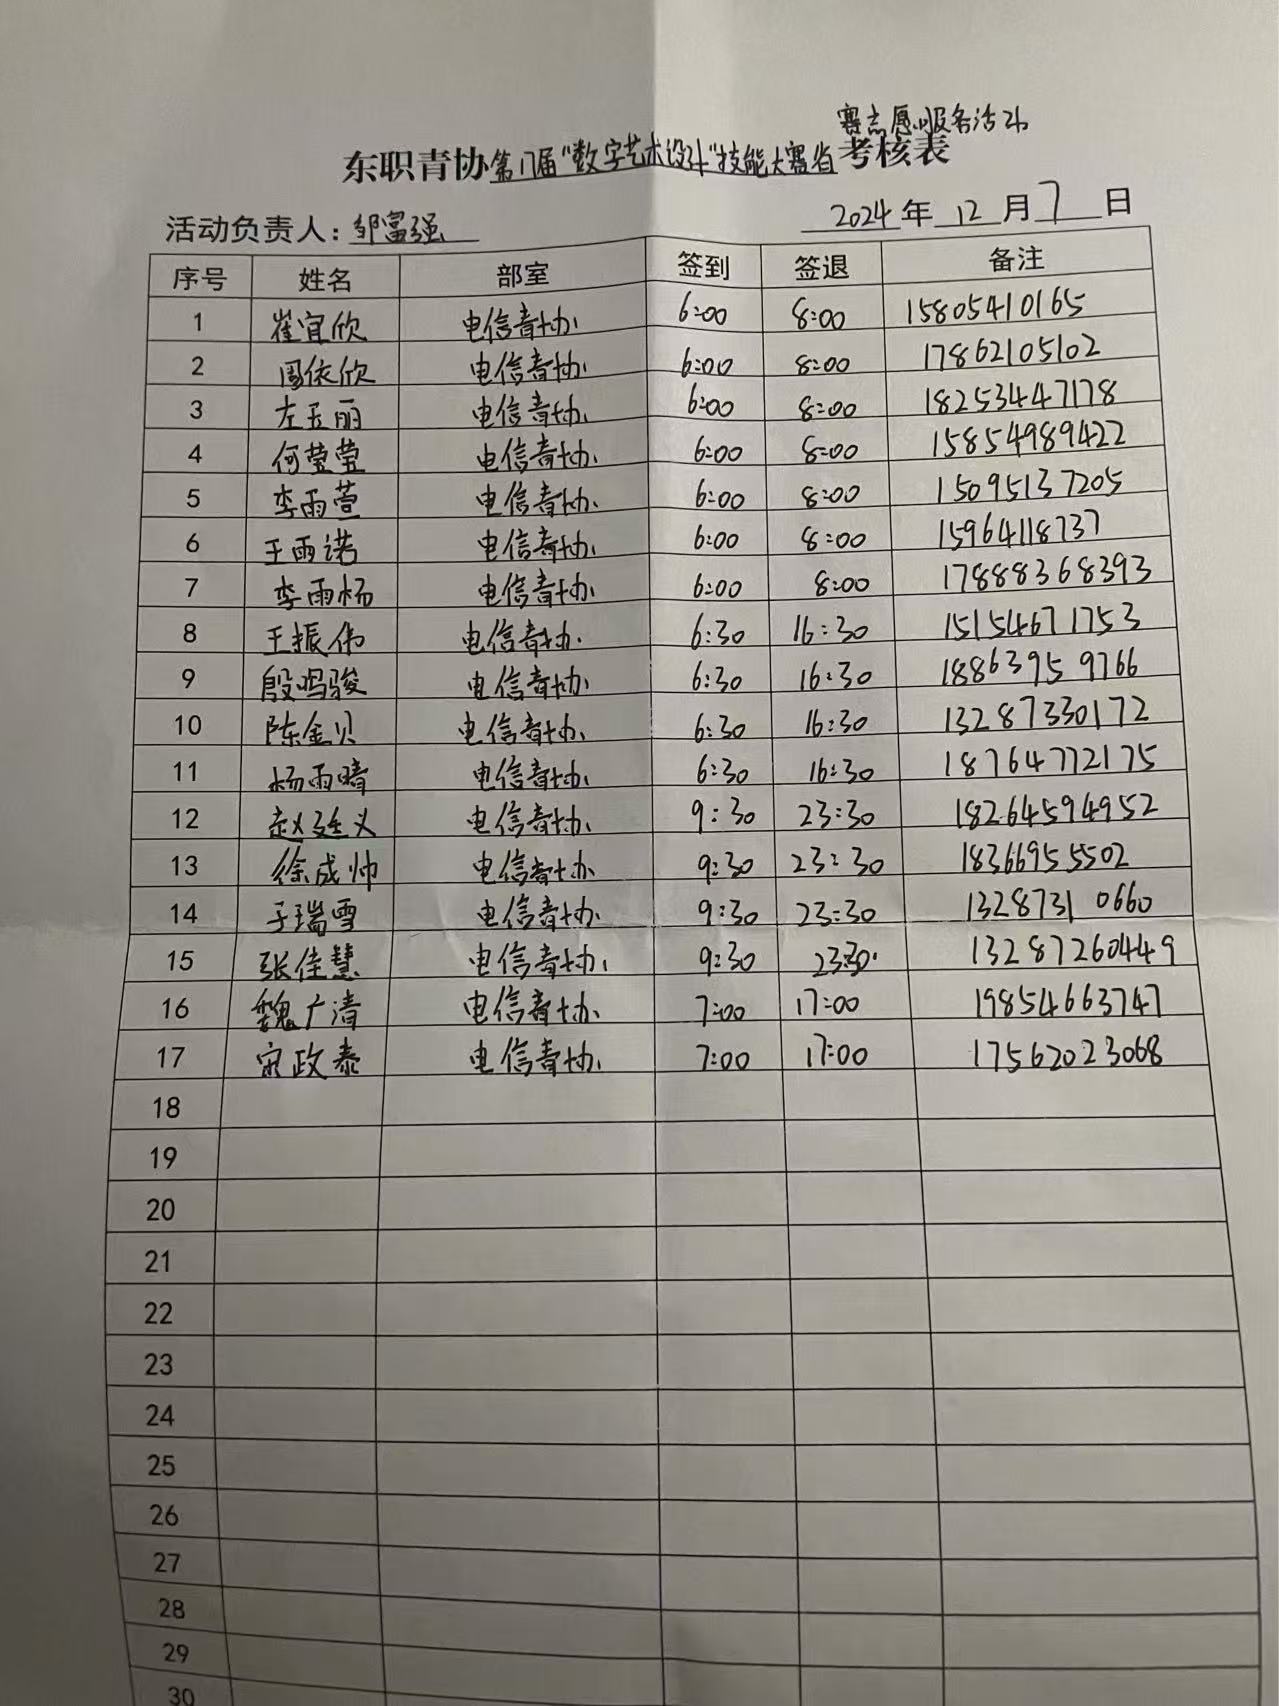 赛志愿服务活动
东职青协第17届"数字艺术设计"技能大赛省考核表
活动负责人：邹富强 2024年12月7日
序号 姓名 部室 签到 签退 备注
1 崔宜欣 电信青协 6:00 8:00 15805410165
2 周依欣 电信青协 6:00 8:00 17862105102
3 左玉丽 电信青协 6:00 8:00 18253447178
4 何莹莹 电信青协 6:00 8:00 15854989422
5 李雨萱 电信青协 6:00 8:00 15095137205
6 王雨诺 电信青协 6:00 8:00 15964118737
7 李雨杨 电信青协 6:00 8:00 17888368393
8 王振伟 电信青协 6:30 16:30 15154671753
9 殷鸣骏 电信青协 6:30 16:30 18863959766
10 陈金贝 电信青协 6:30 16:30 13287330172
11 杨雨晴 电信青协 6:30 16:30 18764772175
12 赵廷义 电信青协 9:30 23:30 18264594952
13 徐成帅 电信青协 9:30 23:30 18366955502
14 于瑞雪 电信青协 9:30 23:30 13287310660
15 张佳慧 电信青协 9:30 23:30 13287260449
16 魏广清 电信青协 7:00 17:00 19854663747
17 宋政泰 电信青协 7:00 17:00 17562023068
18
19
20
21
22
23
24
25
26
27
28
29
30